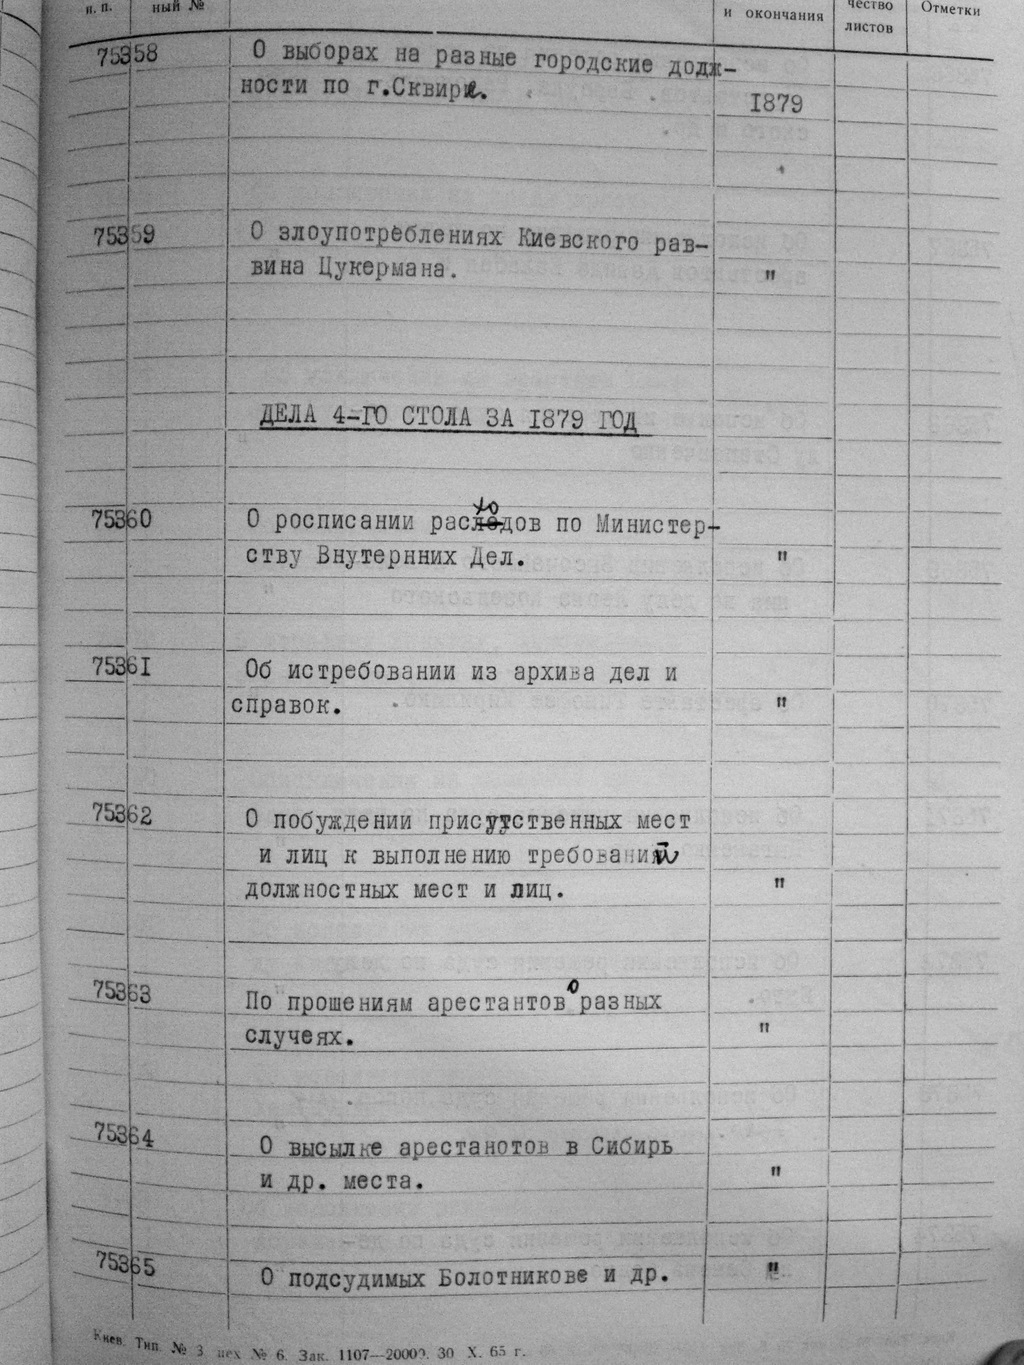 п. п.
ный №
и окончания
чество
листов
Отметки
75358 О выборах на разные городские долж-
ности по г.Сквире.
1879
75359 О злоупотреблениях Киевского рав-
вина Цукермана. "
ДЕЛА 4-ГО СТОЛА ЗА 1879 ГОД
75360 О росписании расходов по Министер-
ству Внутернних Дел. "
75361 Об истребовании из архива дел и
справок. "
75362 О побуждении присутственных мест
и лиц к выполнению требований
должностных мест и лиц. "
75363 По прошениям арестантов о разных
случеях. "
75364 О высылке арестанотов в Сибирь
и др. места. "
75365 О подсудимых Болотникове и др. "
Киев. Тип. № 3 цех № 6. Зак. 1107—20000. 30 X. 65 г.